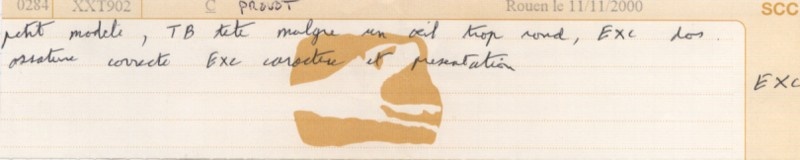 0284 XXT902 C PROUST Rouen le 11/11/2000 SCC
petit modele, TB tete malgre un oeil trop rond, EXC dos.
ossature correcte EXC caractere et presentation
EXC